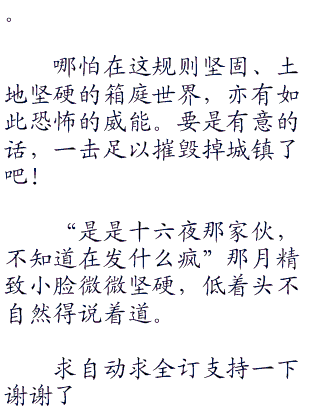 。
哪怕在这规则坚固、土
地坚硬的箱庭世界，亦有如
此恐怖的威能。要是有意的
话，一击足以摧毁掉城镇了
吧！
“是是十六夜那家伙，
不知道在发什么疯”那月精
致小脸微微坚硬，低着头不
自然得说着道。
求自动求全订支持一下
谢谢了